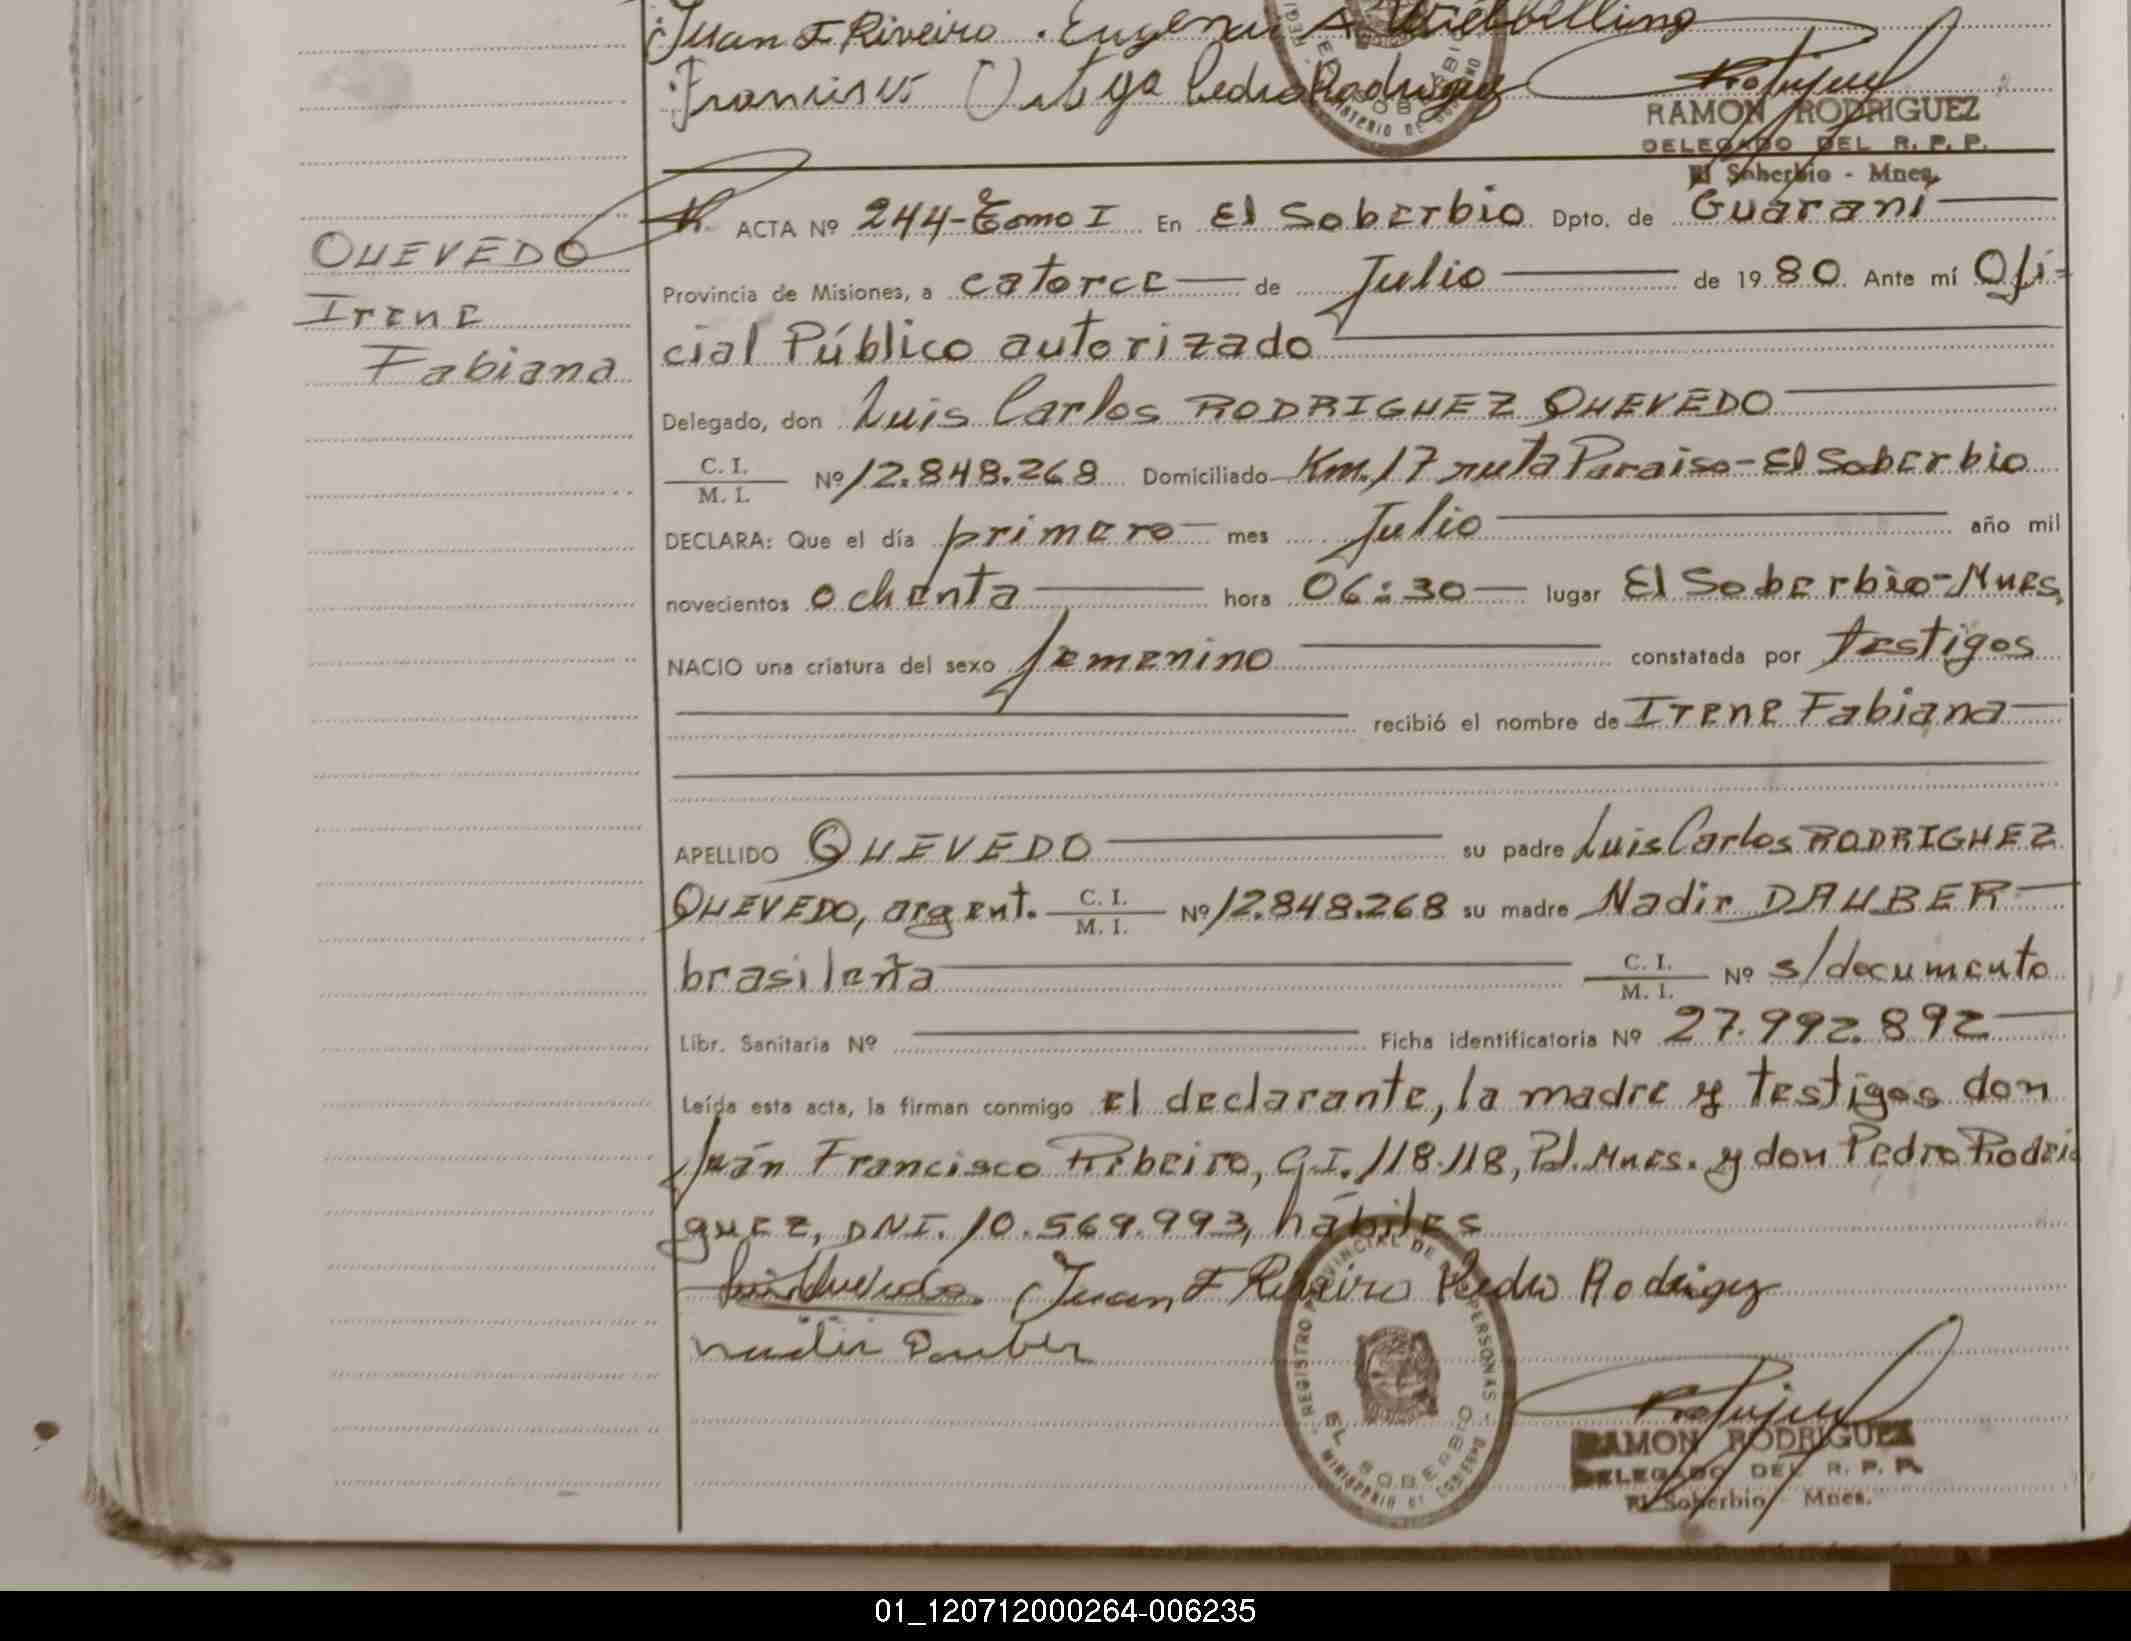 Juan F Riveiro . Eugenio A.
Francisco Ortega Pedro Rodriguez
RAMON RODRIGUEZ
DELEGADO DEL R. P. P.
El Soberbio - Mnes.
QUEVEDO
Irene
Fabiana
ACTA Nº 244-Tomo I En El Soberbio Dpto. de Guaraní
Provincia de Misiones, a catorce de Julio de 1980. Ante mí Ofi-
cial Público autorizado
Delegado, don Luis Carlos RODRIGUEZ QUEVEDO
C. I.
M. I.
Nº 12.848.268 Domiciliado Km. 17 ruta Paraiso-El Soberbio
DECLARA: Que el día primero mes Julio año mil
novecientos ochenta hora 06:30 lugar El Soberbio-Mnes,
NACIO una criatura del sexo femenino constatada por testigos
recibió el nombre de Irene Fabiana
APELLIDO QUEVEDO su padre Luis Carlos RODRIGUEZ
QUEVEDO, argent. C. I. M. I. Nº 12.848.268 su madre Nadir DAUBER
brasileña C. I. M. I. Nº s/documento
Libr. Sanitaria Nº Ficha identificatoria Nº 27.992.892
Leída esta acta, la firman conmigo el declarante, la madre y testigos don
Juán Francisco Ribeiro, C.I. 118.118, Pol. Mnes. y don Pedro Rodri
guez, DNI. 10.569.993, hábiles
Luis Quevedo Juan F Riveiro Pedro Rodrigez
nadir Dauber
REGISTRO PROVINCIAL DE PERSONAS
EL SOBERBIO
MINISTERIO DE GOBIERNO
RAMON RODRIGUEZ
DELEGADO DEL R. P. P.
El Soberbio - Mnes.
01_120712000264-006235